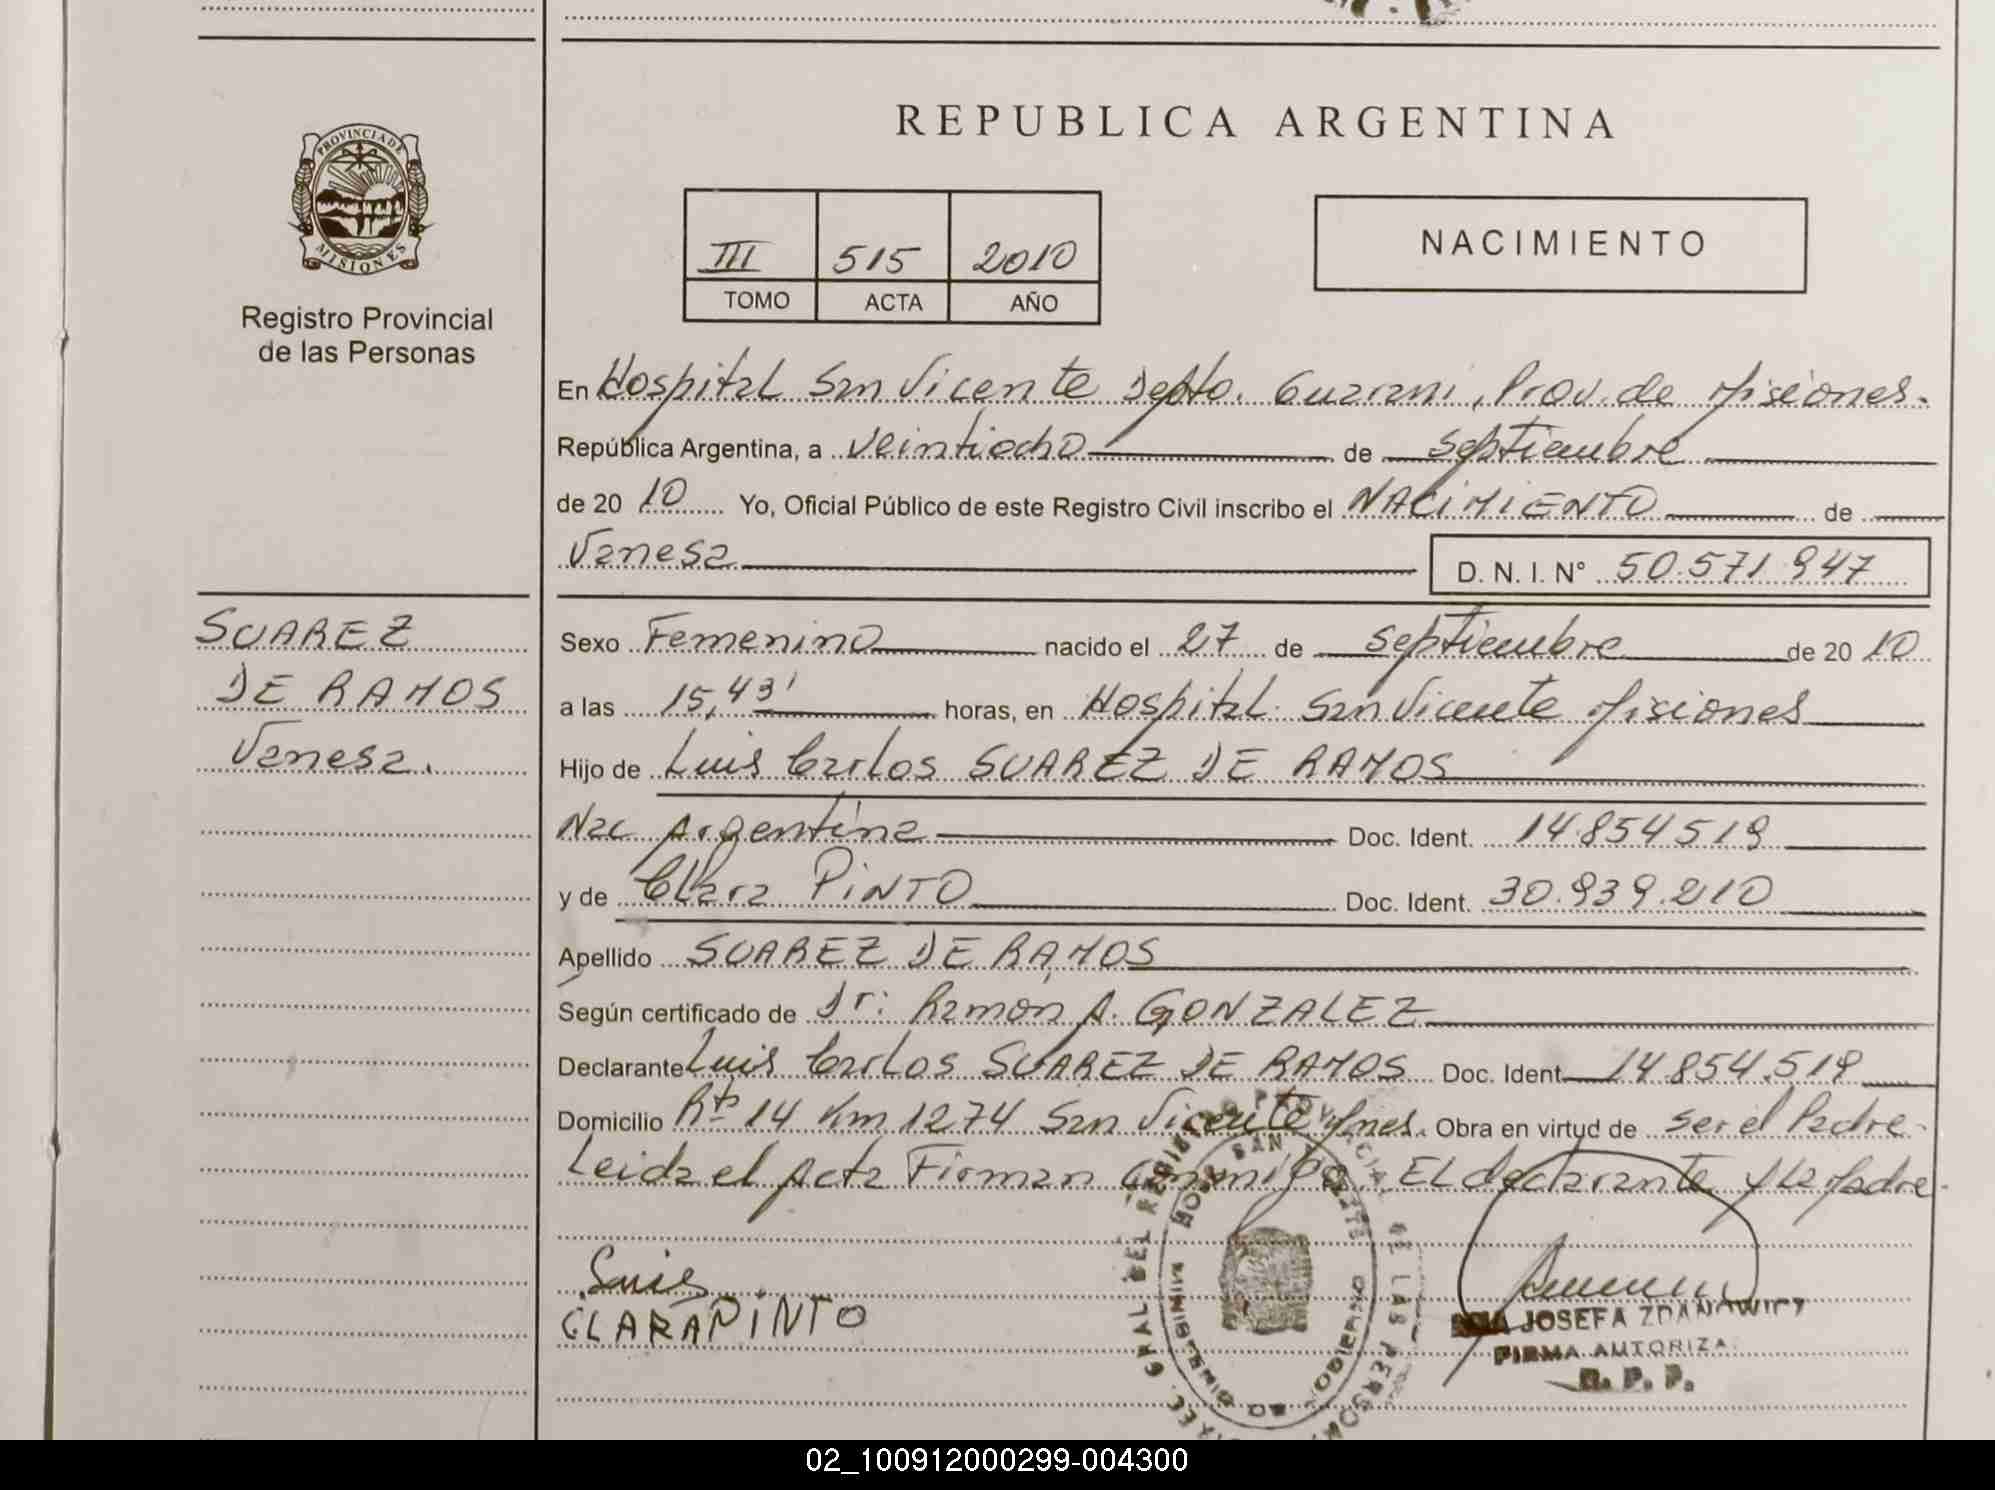 REPUBLICA ARGENTINA
PROVINCIA DE
MISIONES
Registro Provincial
de las Personas
III 515 2010
TOMO ACTA AÑO
NACIMIENTO
En Hospital San Vicente Depto. Guarani, Prov. de Misiones.
República Argentina, a veintiocho de septiembre
de 2010 Yo, Oficial Público de este Registro Civil inscribo el NACIMIENTO de
Vanesa D. N. I. N° 50.571.947
SUAREZ
DE RAMOS
Vanesa.
Sexo Femenino nacido el 27 de septiembre de 2010
a las 15,43' horas, en Hospital San Vicente Misiones
Hijo de Luis Carlos SUAREZ DE RAMOS
Nac Argentina Doc. Ident. 14.854519
y de Clara PINTO Doc. Ident. 30.939.210
Apellido SUAREZ DE RAMOS
Según certificado de Dr: Ramon A. GONZALEZ
Declarante Luis Carlos SUAREZ DE RAMOS Doc. Ident. 14.854.519
Domicilio Rta 14 Km 1274 San Vicente Mnes. Obra en virtud de ser el Padre.
Leida el Acta Firman Conmigo. El declarante y la Madre.
Luis
CLARA PINTO
JOSEFA ZDANOWICZ
FIRMA AUTORIZA
R. P. P.
02_100912000299-004300